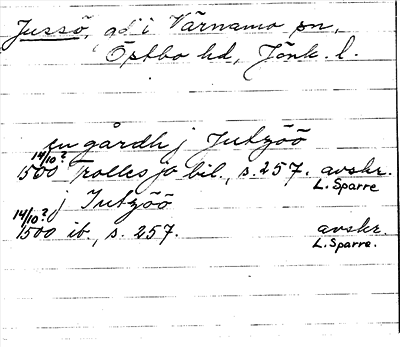 Jussö, gd i Värnamo sn,
Östbo hd, Jönk. l.
en gårdh j Jutzöö
14/10?
1500 Trolles jo bil., s. 257. avskr.
L. Sparre
j Jutzöö
14/10?
1500 ib., s. 257. avskr.
L. Sparre.